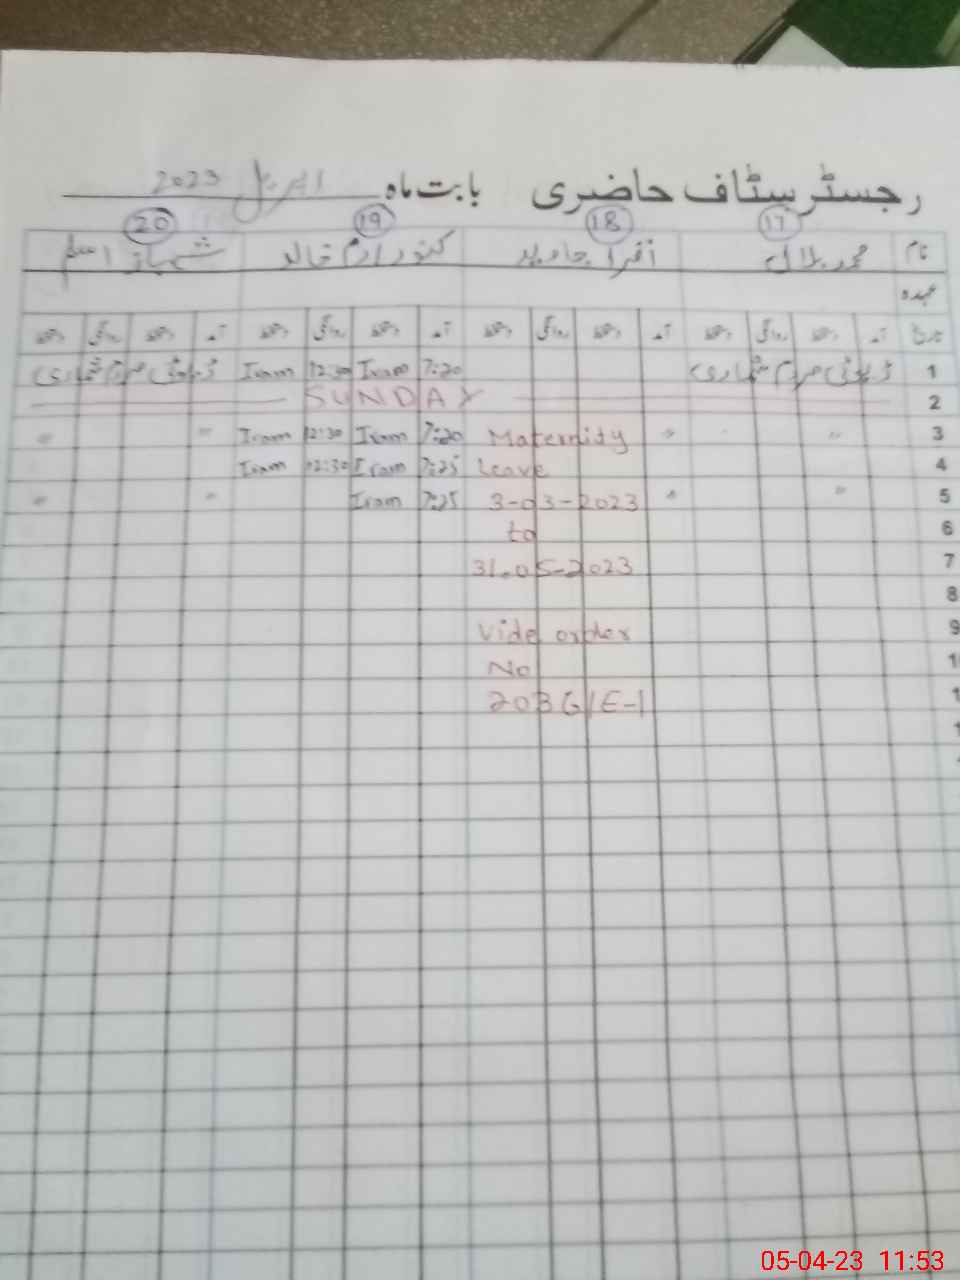 رجسٹر سٹاف حاضری بابت ماہ اپریل 2023
17 18 19 20
نام محمد بلال اقراء جاوید کنور ارم خالد شہباز اسلم
عہدہ
تاریخ آمد دستخط روانگی دستخط آمد دستخط روانگی دستخط آمد دستخط روانگی دستخط آمد دستخط روانگی دستخط
1 ڈیوٹی مردم شماری 7:20 Iram 12:30 Iram ڈیوٹی مردم شماری
2 SUNDAY
3 〃 〃 Maternity 7:20 Iram 12:30 Iram 〃 〃
4 Leave 7:25 Iram 12:30 Iram
5 〃 〃 3-03-2023 7:25 Iram 〃 〃
6 to
7 31.05-2023
8
9 Vide order
1 No
1 203G/E-1
05-04-23 11:53